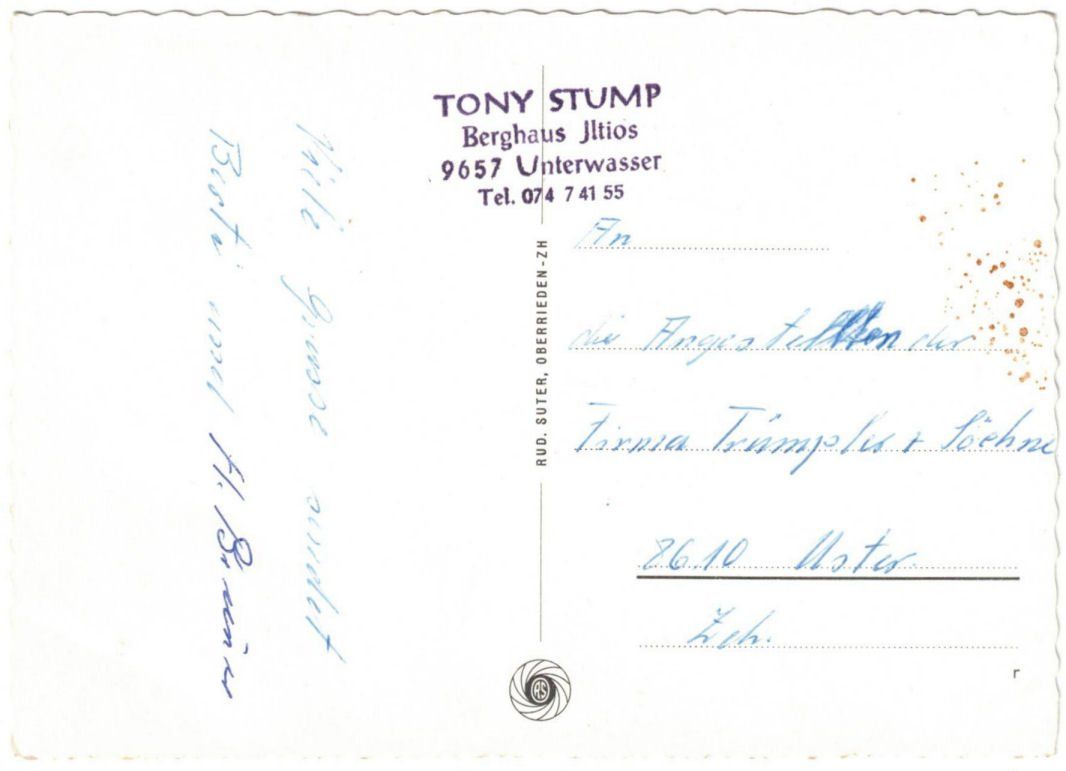 TONY STUMP
Berghaus Jltios
9657 Unterwasser
Tel. 074 7 41 55
Viele Grüsse
und H.
RUD. SUTER, OBERRIEDEN-ZH
An
die Angestellten der
Firma Trümpler + Söehne
8610 Uster.
Zch.
RS
r